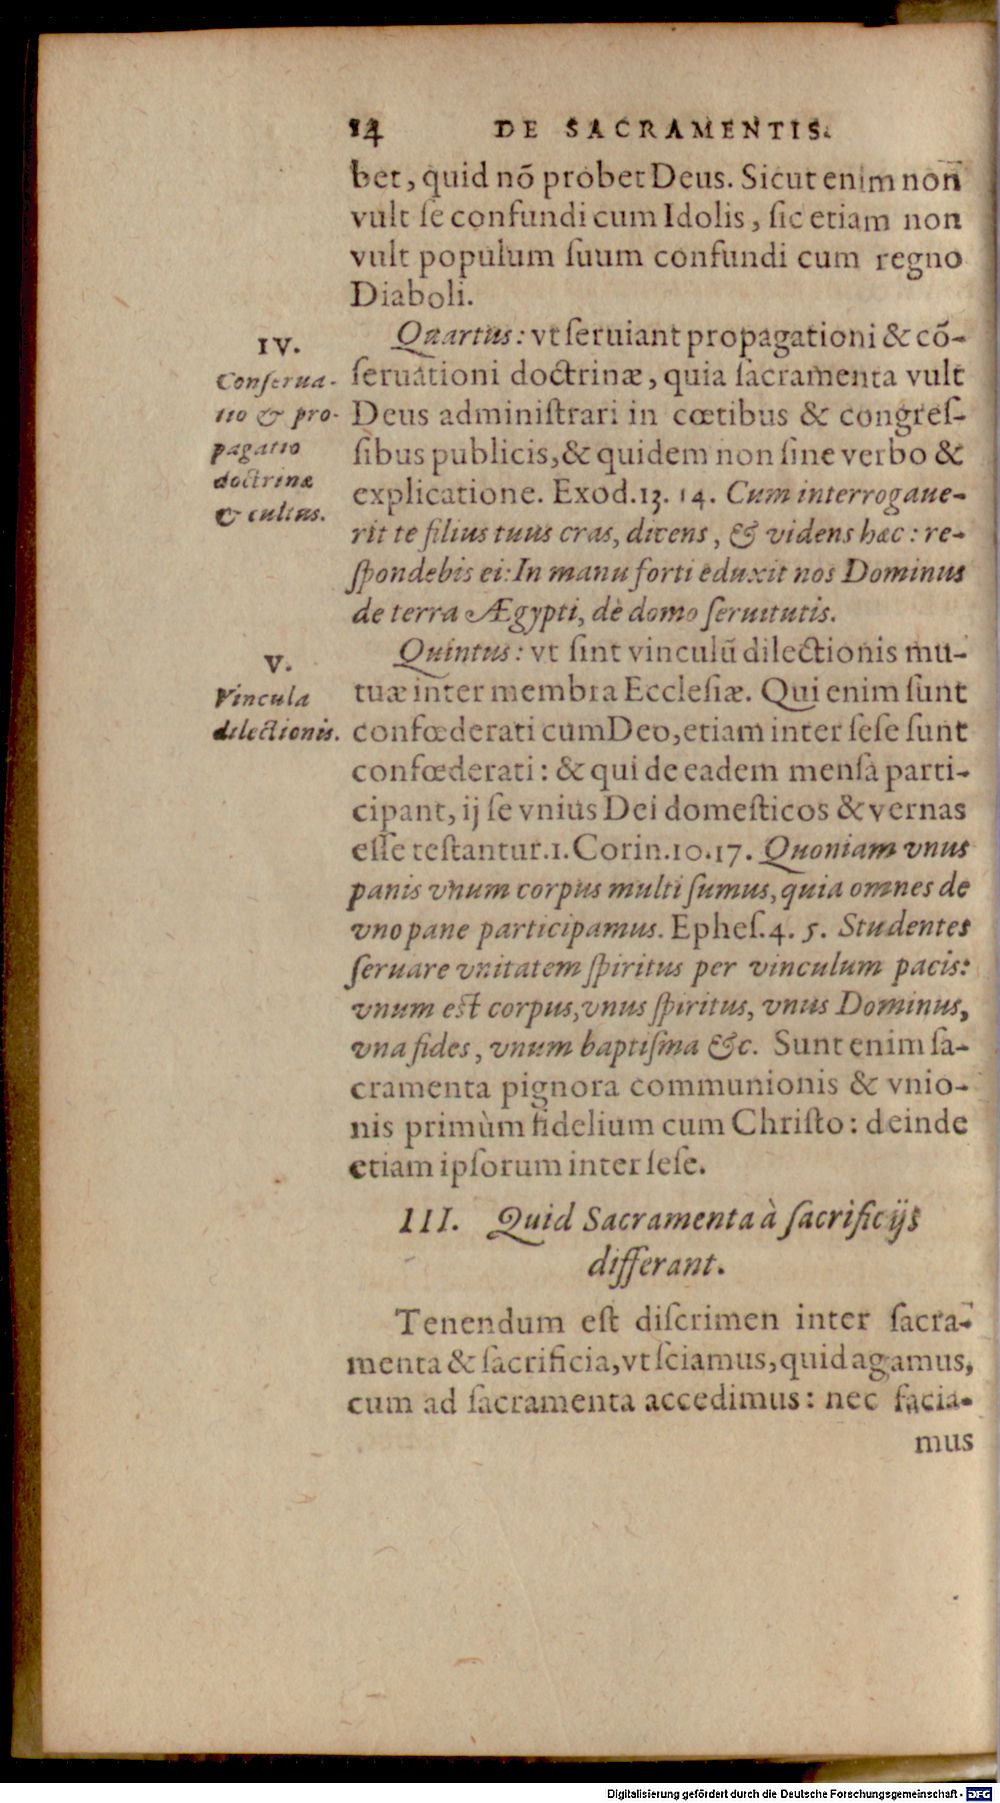 14 DE SACRAMENTIS.
bet, quid nõ probet Deus. Sicut enim non
vult ſe confundi cum Idolis, ſic etiam non
vult populum ſuum confundi cum regno
Diaboli.
IV.
Conſerua-
tio & pro-
pagatio
doctrinæ
& cultus.
Quartus: vt ſeruiant propagationi & cõ-
ſeruationi doctrinæ, quia ſacramenta vult
Deus adminiſtrari in cœtibus & congreſ-
ſibus publicis, & quidem non ſine verbo &
explicatione. Exod. 13. 14. Cum interrogaue-
rit te filius tuus cras, dicens, & videns hæc: re-
ſpondebis ei: In manu forti eduxit nos Dominus
de terra Ægypti, de domo ſeruitutis.
V.
Vincula
dilectionis.
Quintus: vt ſint vinculũ dilectionis mu-
tuæ inter membra Eccleſiæ. Qui enim ſunt
confœderati cum Deo, etiam inter ſeſe ſunt
confœderati: & qui de eadem menſa parti-
cipant, ij ſe vnius Dei domeſticos & vernas
eſſe teſtantur. 1. Corin. 10. 17. Quoniam vnus
panis vnum corpus multi ſumus, quia omnes de
vno pane participamus. Epheſ. 4. 5. Studentes
ſeruare vnitatem ſpiritus per vinculum pacis:
vnum eſt corpus, vnus ſpiritus, vnus Dominus,
vna fides, vnum baptiſma &c. Sunt enim ſa-
cramenta pignora communionis & vnio-
nis primùm fidelium cum Chriſto: deinde
etiam ipſorum inter ſeſe.
III. Quid Sacramenta à ſacrificijs
differant.
Tenendum eſt diſcrimen inter ſacra-
menta & ſacrificia, vt ſciamus, quid agamus,
cum ad ſacramenta accedimus: nec facia-
mus
Digitalisierung gefördert durch die Deutsche Forschungsgemeinschaft - DFG